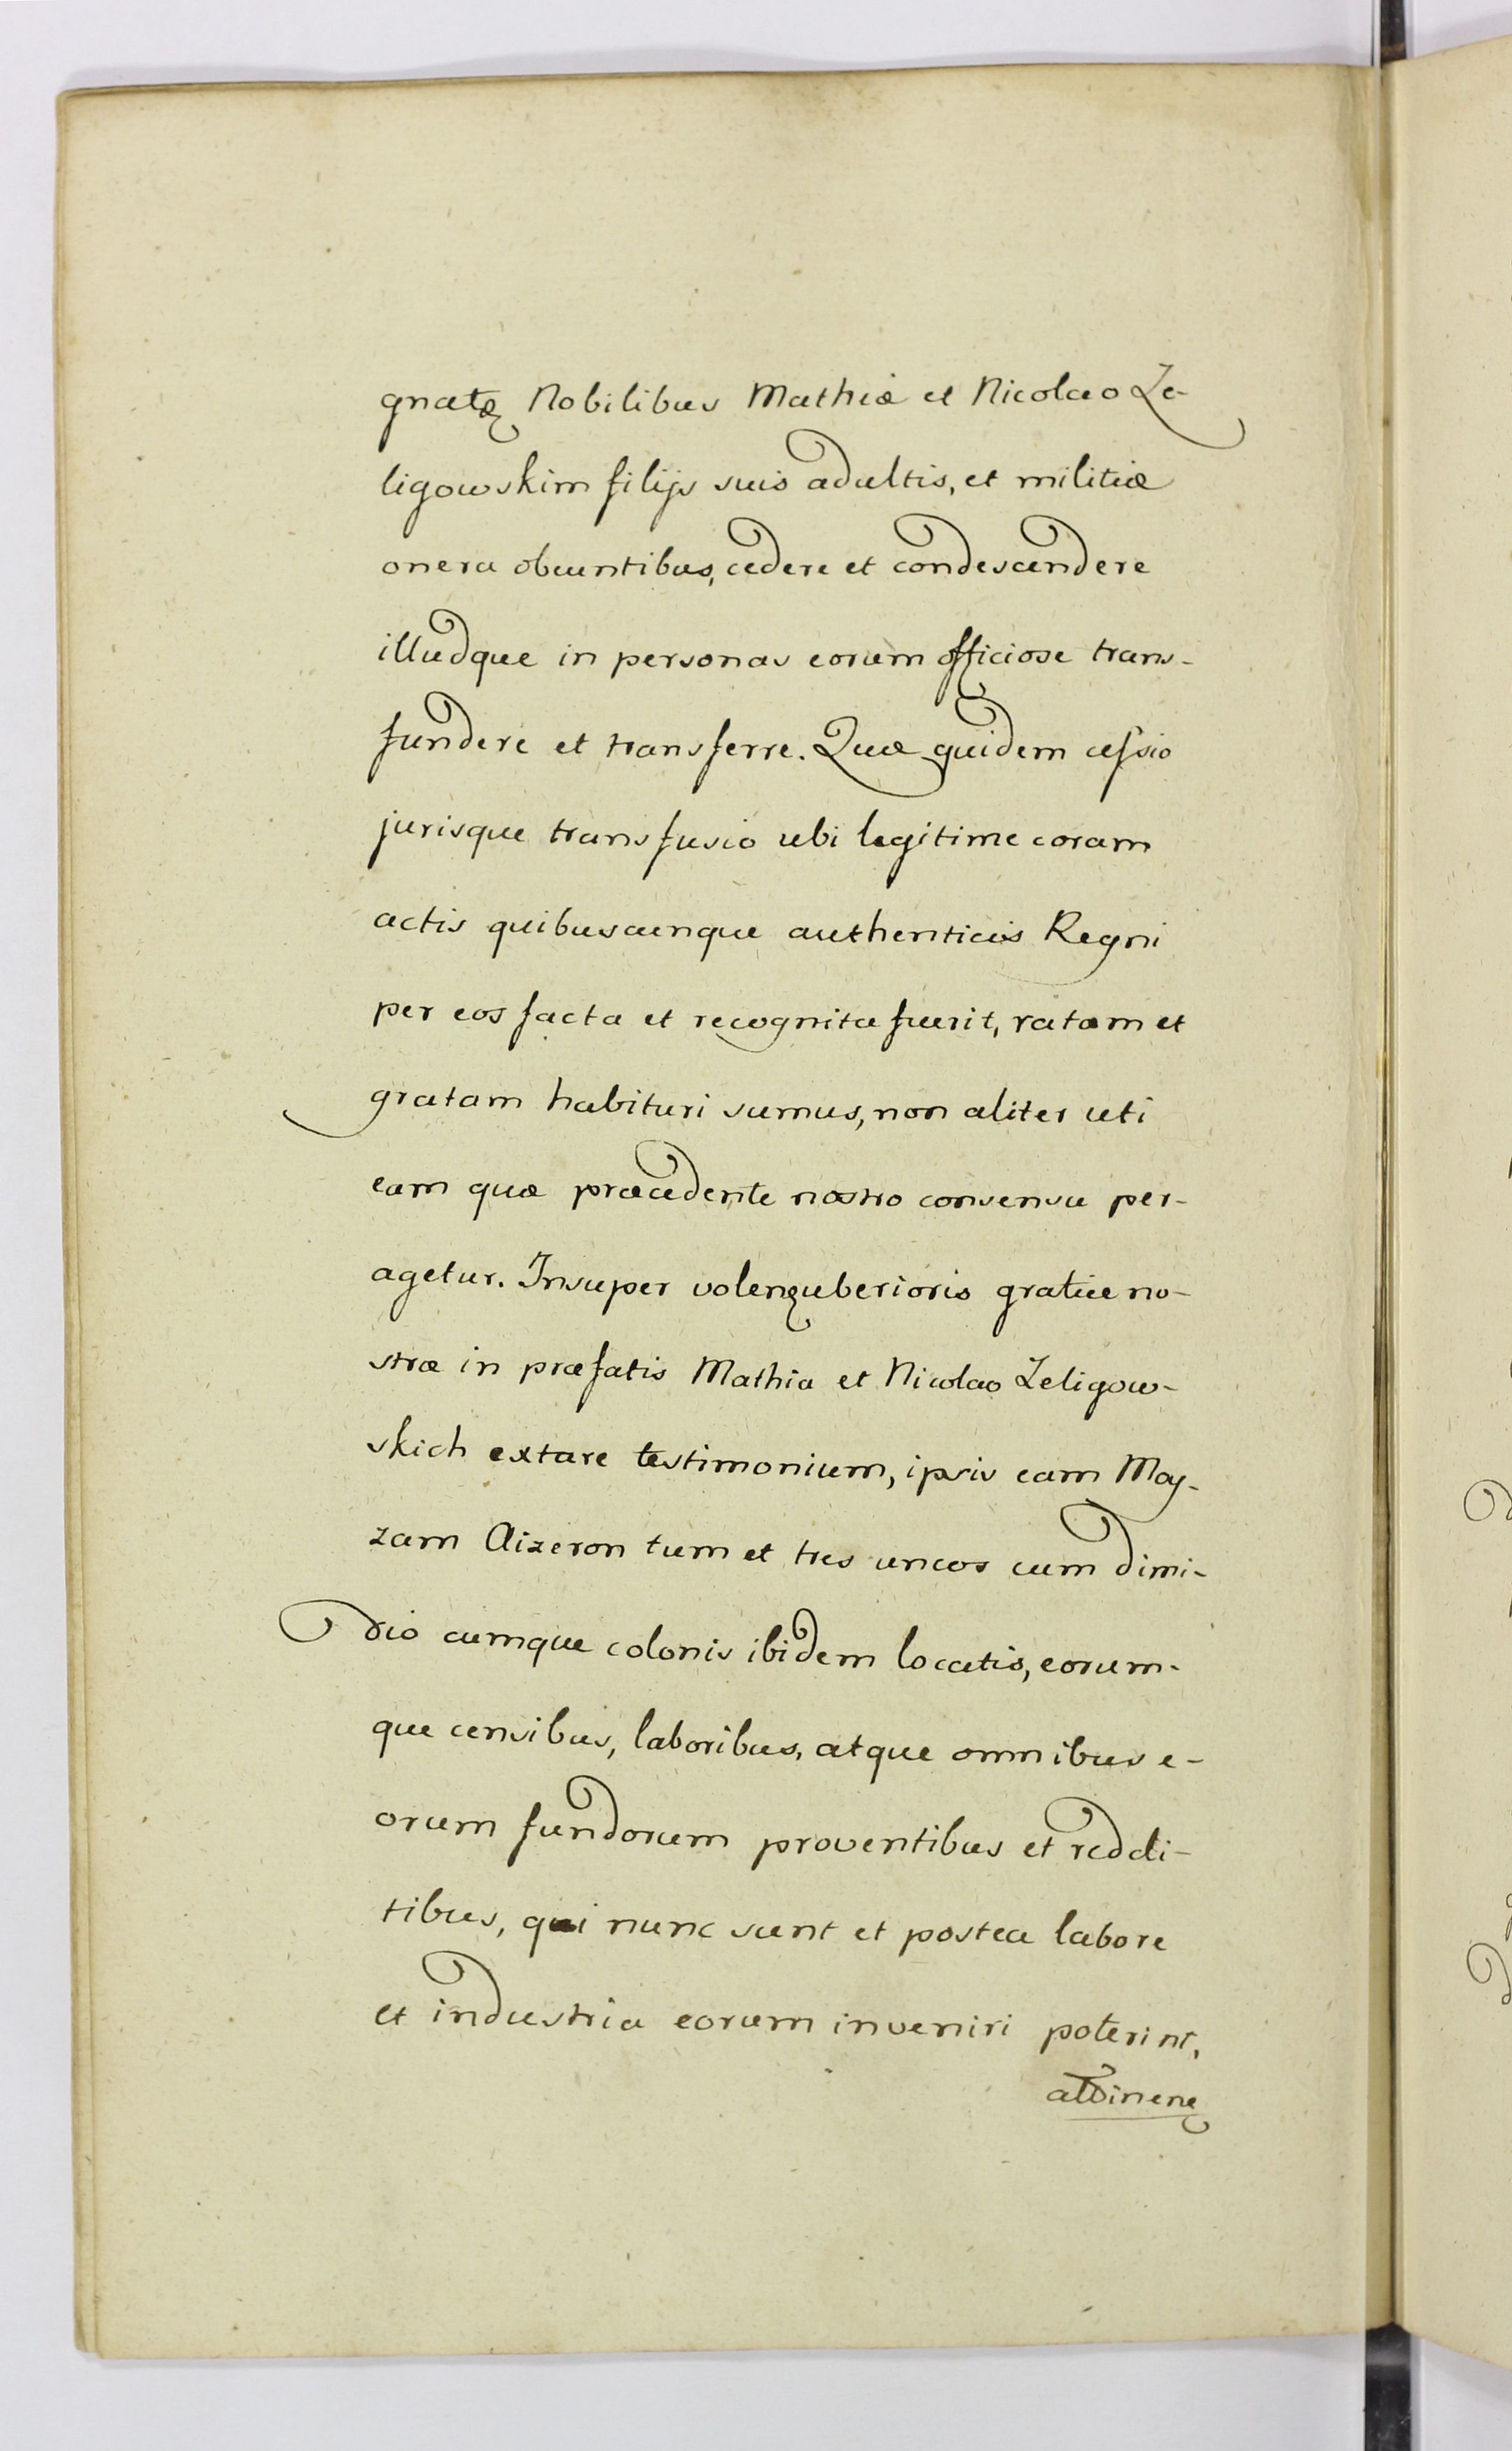 gnatę Nobilibus Mathiæ et Nicolao Ze-
ligowskim filijs suis adultis, et militiæ
onera obeuntibus, cedere et condescendere
illudque in personas eorum officiose trans-
fundere et transferre. Quæ quidem cessio
jurisque transfusio ubi legitime coram
actis quibuscunque authenticis Regni
per eos facta et recognita fuerit, ratam et
gratam habituri sumus, non aliter uti
eam quæ præcedente nostro consensu per-
agetur. Insuper volenę uberioris gratiæ no-
stræ in præfatis Mathia et Nicolao Zeligow-
skich extare testimonium, ipsis eam May-
zam Aizeron tum et tres uncos cum dimi-
dio cumque colonis ibidem locatis, eorum-
que censibus, laboribus, atque omnibus e-
orum fundorum proventibus et reddi-
tibus, qui nunc sunt et postea labore
et industria eorum inveniri poterint,